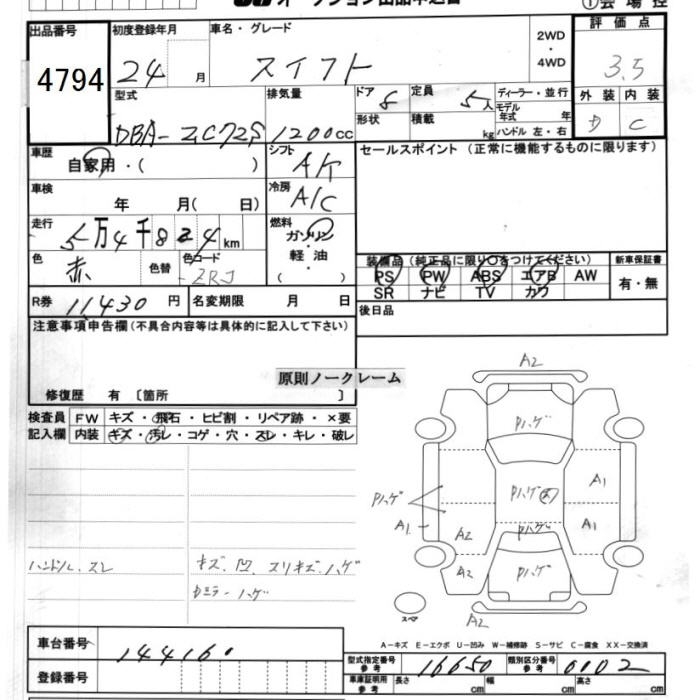 ①会場控
オークション出品申込書
出品番号
4794
初度登録年月
24 月
車名・グレード
スイフト
2WD
・
4WD
評価点
3.5
型式
DBA-ZC72S
排気量
1200cc
ドア
定員
5人
形状
積載
kg
ディーラー・並行
モデル年式 年
ハンドル 左・右
外装 内装
D C
車歴
自家用・( )
シフト
冷房
A/C
セールスポイント (正常に機能するものに限ります)
車検
年 月( 日)
走行
5万4千824km
燃料
ガソリン
・
軽油
・
( )
色
赤
色替
色コード
ZRJ
装備品 (純正品に限り○をつけてください)
PS PW ABS エアB AW
SR ナビ TV カワ
新車保証書
有・無
R券
11,430円
名変期限 月 日
後日品
注意事項申告欄 (不具合内容等は具体的に記入して下さい)
修復歴 有 〔箇所 〕
原則ノークレーム
検査員
記入欄
FW キズ・飛石・ヒビ割・リペア跡・×要
内装 キズ・汚レ・コゲ・穴・スレ・キレ・破レ
ハンドル スレ
キズ. 凹. スリキズ. ハゲ
ミラー ハゲ
A2
Pハゲ
Pハゲ
A1
Pハゲ
A1
Pハゲ
A1
A2
A2
Pハゲ
スペア
A2
A−キズ E−エクボ U−凹み W−補修跡 S−サビ C−腐食 XX−交換済
車台番号
144161
型式指定番号
参考
16650
類別区分番号
参考
0102
登録番号
車庫証明用
参考
長さ cm 幅 cm 高さ cm